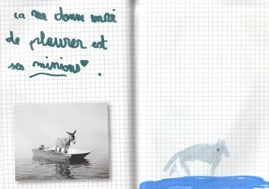 ça me donne envie
de pleurer est
ses minions